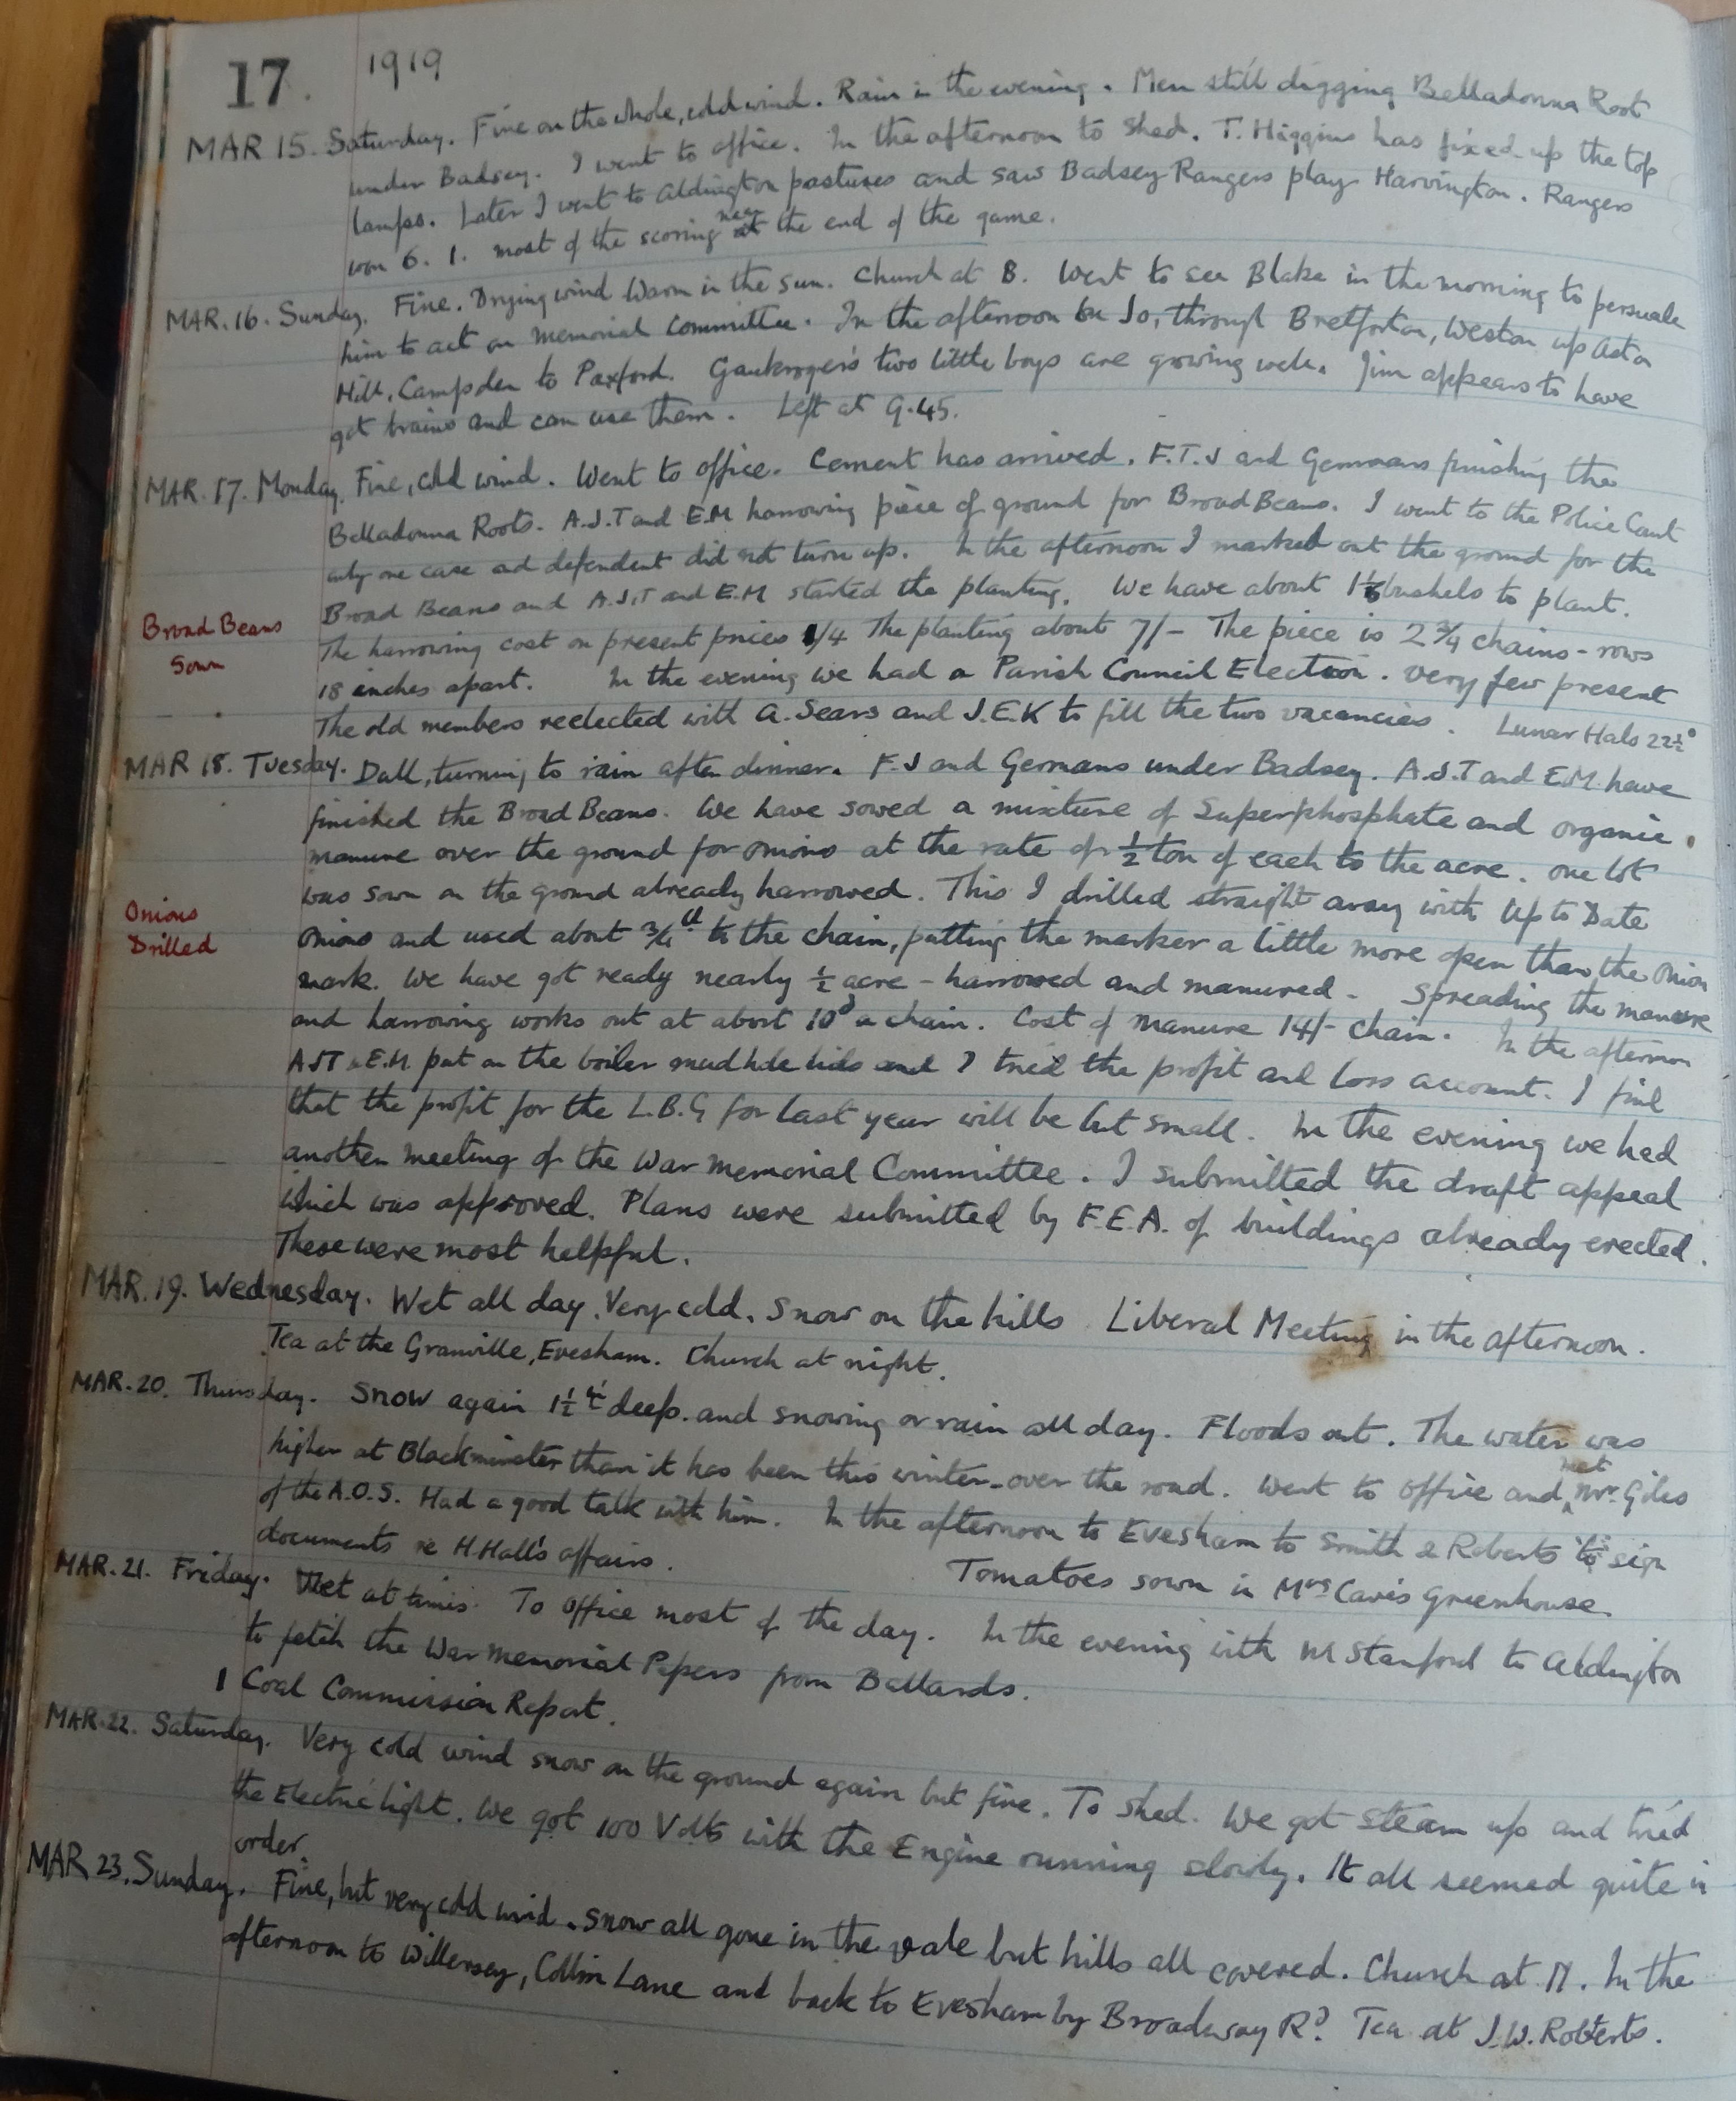 17. 1919
MAR 15. Saturday. Fine on the whole, cold wind. Rain in the evening. Men still digging Belladonna Root
under Badsey. I went to office. In the afternoon to shed. T. Higgins has fixed up the top
lamps. Later I went to Aldington pastures and saw Badsey Rangers play Harvington. Rangers
won 6. 1. most of the scoring near the end of the game.
MAR. 16. Sunday. Fine. Drying wind Warm in the sun. Church at B. Went to see Blake in the morning to persuade
him to act on Memorial Committee. In the afternoon to Jo, through Bretforton, Weston up Aston
Hill, Campden to Paxford. Gaukroger's two little boys are growing well. Jim appears to have
got brains and can use them. Left at 9.45.
MAR. 17. Monday. Fine, cold wind. Went to office. Cement has arrived. F.T.J and Germans finishing the
Belladonna Roots. A.J.T and E.M harrowing piece of ground for Broad Beans. I went to the Police Court
only one case ad defendent did not turn up. In the afternoon I marked out the ground for the
Broad Beans and A.J.T and E.M started the planting. We have about bushels to plant.
Broad Beans
Sown
The harrowing cost on present prices 1/4 The planting about 7/- The piece is 2 3/4 chains - rows
18 inches apart. In the evening we had a Parish Council Election. Very few present
The old members reelected with A. Sears and J.E.K to fill the two vacancies. Lunar Halo 22½°
MAR 18. Tuesday. Dull, turning to rain after dinner. F.J and Germans under Badsey. A.J.T and E.M. have
finished the Broad Beans. We have sowed a mixture of Superphosphate and organic
manure over the ground for onions at the rate of ½ ton of each to the acre. One lot
was sown on the ground already harrowed. This I drilled straight away with Up to Date
Onions
Drilled
Onions and used about 3/4 lb to the chain, putting the marker a little more open than the Onion
mark. We have got ready nearly ½ acre - harrowed and manured. Spreading the manure
and harrowing works out at about 10d a chain. Cost of manure 14/- chain. In the afternoon
AJT & E.M. put on the boiler mudhole lids and I tried the profit and loss account. I find
that the profit for the L.B.G for last year will be but small. In the evening we had
another meeting of the War Memorial Committee. I submitted the draft appeal
which was approved. Plans were submitted by F.E.A. of buildings already erected.
These were most helpful.
MAR. 19. Wednesday. Wet all day. Very cold. Snow on the hills Liberal Meeting in the afternoon.
Tea at the Granville, Evesham. Church at night.
MAR. 20. Thursday. Snow again 1½ in deep. and snowing or rain all day. Floods out. The water was
higher at Blackminster than it has been this winter - over the road. Went to office and met Mr. Giles
of the A.O.S. Had a good talk with him. In the afternoon to Evesham to Smith & Roberts to sign
documents re H. Hall's affairs. Tomatoes sown in Mrs Cave's Greenhouse.
MAR. 21. Friday. Wet at times. To office most of the day. In the evening with M Stanford to Aldington
to fetch the War Memorial Papers from Ballards.
1 Coal Commission Report.
MAR. 22. Saturday. Very cold wind snow on the ground again but fine. To shed. We got steam up and tried
the Electric light. We got 100 Volts with the Engine running slowly. It all seemed quite in
order.
MAR 23. Sunday. Fine, but very cold wind. Snow all gone in the vale but hills all covered. Church at M. In the
afternoon to Willersey, Collin Lane and back to Evesham by Broadway Rd. Tea at J.W. Roberts.